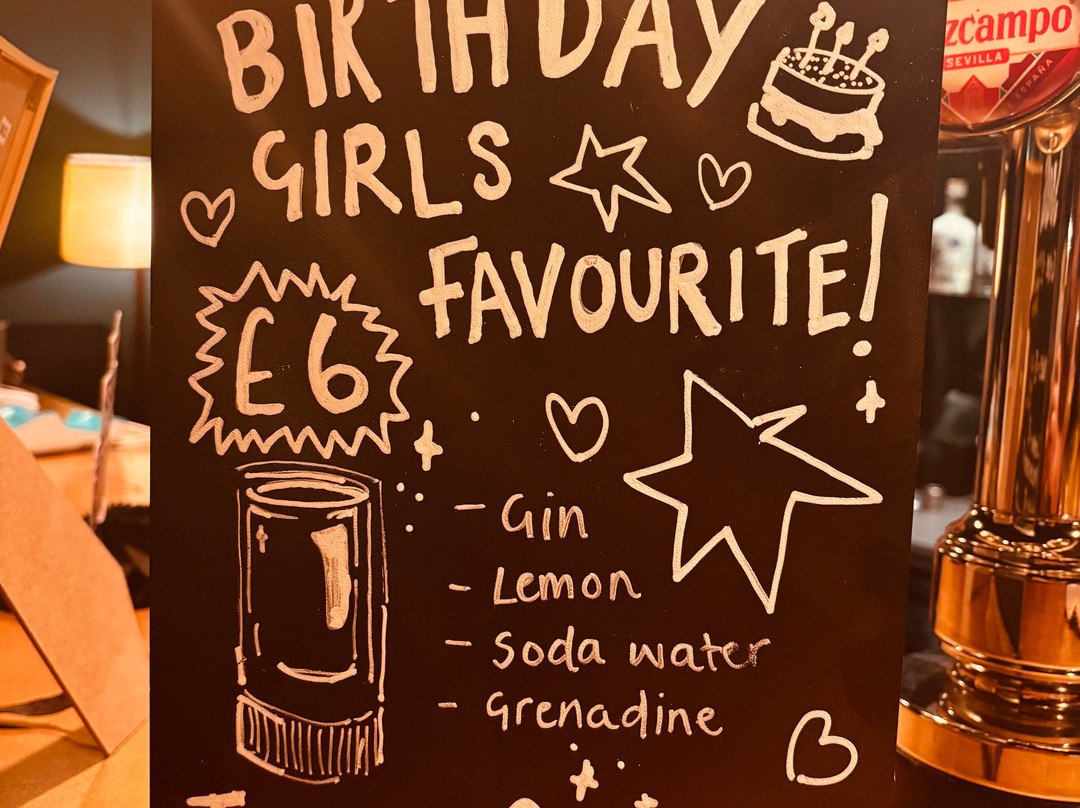 BIRTHDAY
GIRLS
FAVOURITE!
£6
- Gin
- Lemon
- Soda water
- Grenadine
zcampo
SEVILLA
ESPAÑA